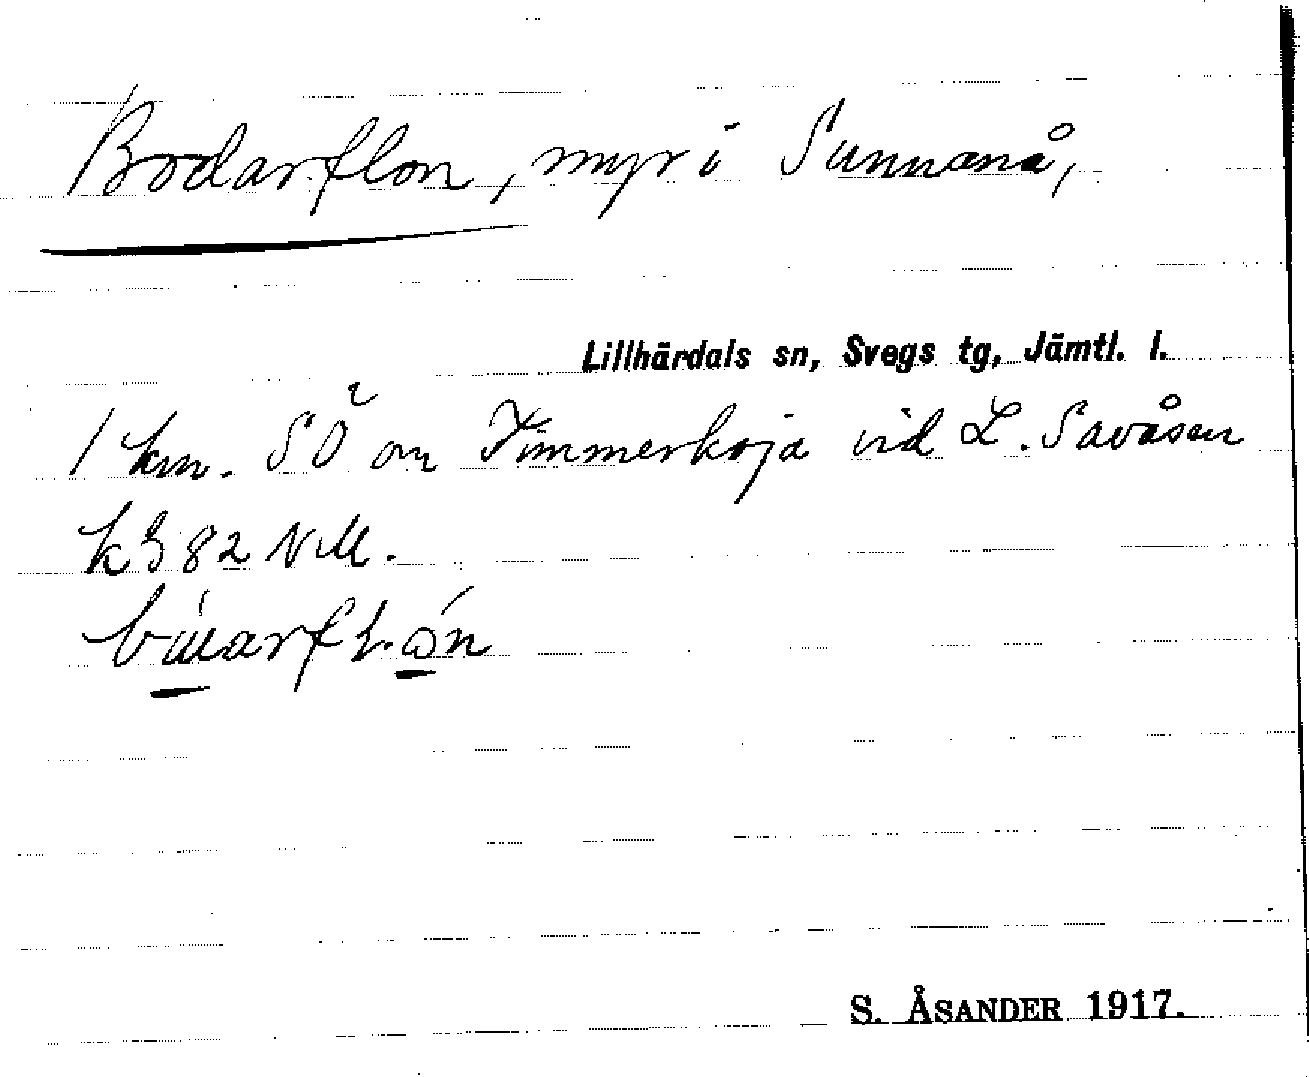 Bodarflon, myr i Sunnanå,
Lillhärdals sn, Svegs tg, Jämtl. l.
1 km. SÖ om Timmerkoja vid L. Savåsen
k 3 82 NM.
S. ÅSANDER 1917.